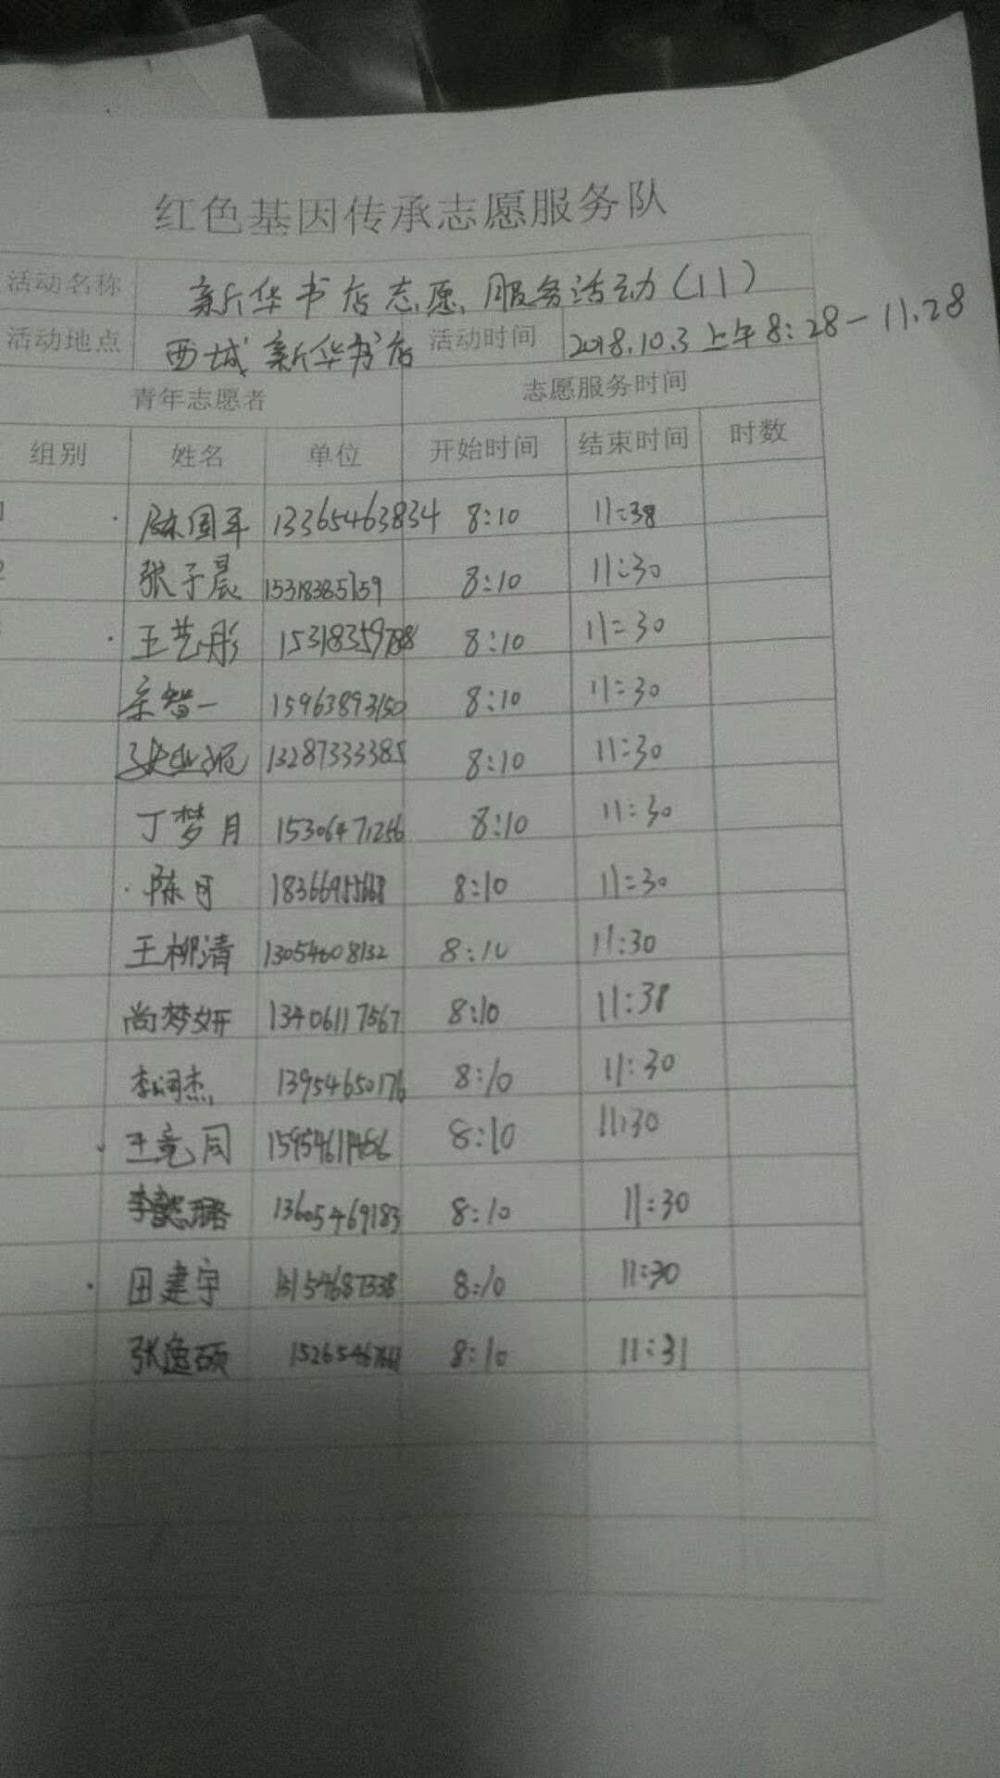 红色基因传承志愿服务队
活动名称 新华书店志愿服务活动(11)
活动地点 西城新华书店 活动时间 2018.10.3 上午8:28-11.28
青年志愿者 志愿服务时间
组别 姓名 单位 开始时间 结束时间 时数
1 陈国平 13365463834 8:10 11:38
2 张子晨 15318385159 8:10 11:30
王艺彤 8:10 11:30
宗智一 15963893150 8:10 11:30
13287333385 8:10 11:30
丁梦月 15306471256 8:10 11:30
陈可 8:10 11:30
王柳清 13054608132 8:10 11:30
尚梦妍 13406117567 8:10 11:38
李润杰 13954650176 8:10 11:30
王竟同 8:10 11:30
13605469183 8:10 11:30
田建宇 8:10 11:30
张逸硕 8:10 11:31